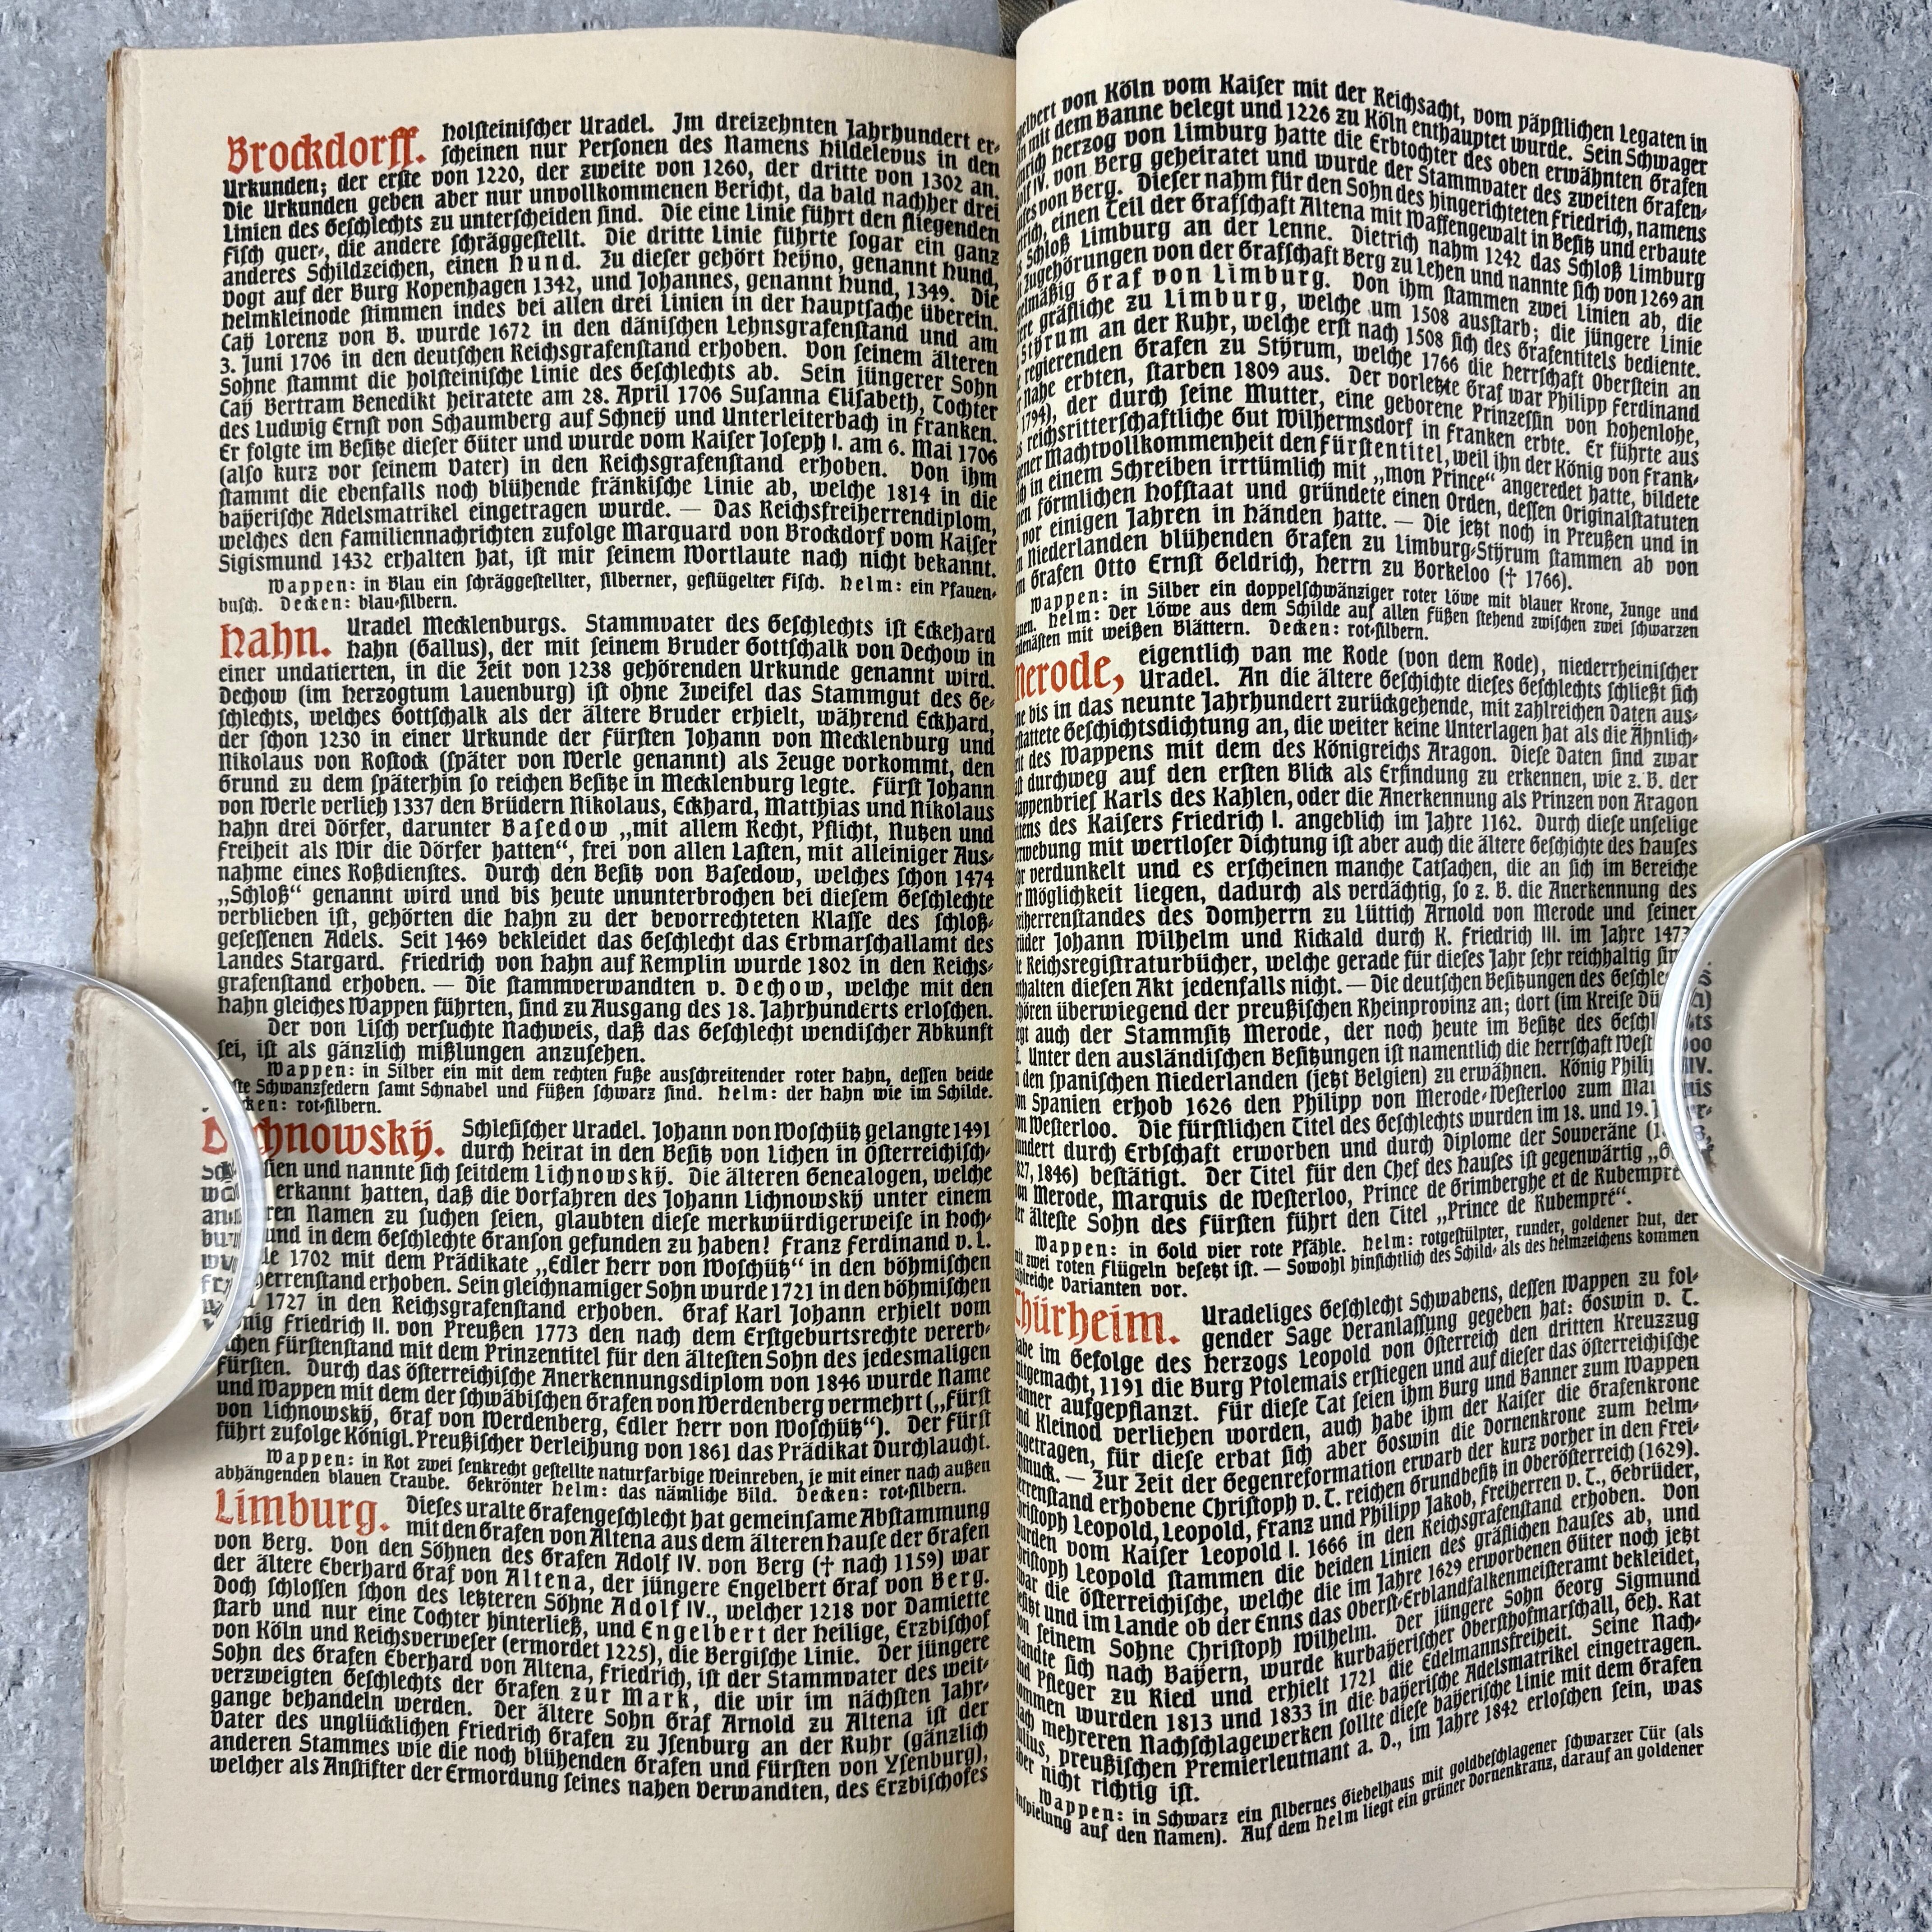 Brockdorff. Holsteinischer Uradel. Im dreizehnten Jahrhundert er-
scheinen nur Personen des Namens Hildelevus in den
Urkunden; der erste von 1220, der zweite von 1260, der dritte von 1302 an.
Die Urkunden geben aber nur unvollkommenen Bericht, da bald nachher drei
Linien des Geschlechts zu unterscheiden sind. Die eine Linie führt den fliegenden
Fisch quer-, die andere schräggestellt. Die dritte Linie führte sogar ein ganz
anderes Schildzeichen, einen Hund. Zu dieser gehört Heyno, genannt Hund,
Vogt auf der Burg Kopenhagen 1342, und Johannes, genannt Hund, 1349. Die
Helmkleinode stimmen indes bei allen drei Linien in der Hauptsache überein.
Caÿ Lorenz von B. wurde 1672 in den dänischen Lehnsgrafenstand und am
3. Juni 1706 in den deutschen Reichsgrafenstand erhoben. Von seinem älteren
Sohne stammt die holsteinische Linie des Geschlechts ab. Sein jüngerer Sohn
Caÿ Bertram Benedikt heiratete am 28. April 1706 Susanna Elisabeth, Tochter
des Ludwig Ernst von Schaumberg auf Schneÿ und Unterleiterbach in Franken.
Er folgte im Besitze dieser Güter und wurde vom Kaiser Joseph I. am 6. Mai 1706
(also kurz vor seinem Vater) in den Reichsgrafenstand erhoben. Von ihm
stammt die ebenfalls noch blühende fränkische Linie ab, welche 1814 in die
baÿerische Adelsmatrikel eingetragen wurde. — Das Reichsfreiherrendiplom,
welches den Familiennachrichten zufolge Marquard von Brockdorf vom Kaiser
Sigismund 1432 erhalten hat, ist mir seinem Wortlaute nach nicht bekannt.
Wappen: in Blau ein schräggestellter, silberner, geflügelter Fisch. Helm: ein Pfauen-
busch. Decken: blau-silbern.
Hahn. Uradel Mecklenburgs. Stammvater des Geschlechts ist Eckehard
Hahn (Gallus), der mit seinem Bruder Gottschalk von Dechow in
einer undatierten, in die Zeit von 1238 gehörenden Urkunde genannt wird.
Dechow (im Herzogtum Lauenburg) ist ohne Zweifel das Stammgut des Ge-
schlechts, welches Gottschalk als der ältere Bruder erhielt, während Eckhard,
der schon 1230 in einer Urkunde der Fürsten Johann von Mecklenburg und
Nikolaus von Rostock (später von Werle genannt) als Zeuge vorkommt, den
Grund zu dem späterhin so reichen Besitze in Mecklenburg legte. Fürst Johann
von Werle verlieh 1337 den Brüdern Nikolaus, Eckhard, Matthias und Nikolaus
Hahn drei Dörfer, darunter Basedow „mit allem Recht, Pflicht, Nutzen und
Freiheit als Wir die Dörfer hatten“, frei von allen Lasten, mit alleiniger Aus-
nahme eines Roßdienstes. Durch den Besitz von Basedow, welches schon 1474
„Schloß“ genannt wird und bis heute ununterbrochen bei diesem Geschlechte
verblieben ist, gehörten die Hahn zu der bevorrechteten Klasse des schloß-
gesessenen Adels. Seit 1469 bekleidet das Geschlecht das Erbmarschallamt des
Landes Stargard. Friedrich von Hahn auf Remplin wurde 1802 in den Reichs-
grafenstand erhoben. — Die stammverwandten v. Dechow, welche mit den
Hahn gleiches Wappen führten, sind zu Ausgang des 18. Jahrhunderts erloschen.
Der von Lisch versuchte Nachweis, daß das Geschlecht wendischer Abkunft
sei, ist als gänzlich mißlungen anzusehen.
Wappen: in Silber ein mit dem rechten Fuße ausschreitender roter Hahn, dessen beide
Schwanzfedern samt Schnabel und Füßen schwarz sind. Helm: der Hahn wie im Schilde.
rot-silbern.
Lichnowskÿ. Schlesischer Uradel. Johann von Woschütz gelangte 1491
durch Heirat in den Besitz von Lichen in Österreichisch-
und nannte sich seitdem Lichnowskÿ. Die älteren Genealogen, welche
erkannt hatten, daß die Vorfahren des Johann Lichnowskÿ unter einem
Namen zu suchen seien, glaubten diese merkwürdigerweise in Hoch-
und in dem Geschlechte Granson gefunden zu haben! Franz Ferdinand v. L.
1702 mit dem Prädikate „Edler Herr von Woschütz“ in den böhmischen
erhoben. Sein gleichnamiger Sohn wurde 1721 in den böhmischen
1727 in den Reichsgrafenstand erhoben. Graf Karl Johann erhielt vom
Friedrich II. von Preußen 1773 den nach dem Erstgeburtsrechte vererb-
Fürstenstand mit dem Prinzentitel für den ältesten Sohn des jedesmaligen
Fürsten. Durch das österreichische Anerkennungsdiplom von 1846 wurde Name
und Wappen mit dem der schwäbischen Grafen von Werdenberg vermehrt („Fürst
von Lichnowskÿ, Graf von Werdenberg, Edler Herr von Woschütz“). Der Fürst
führt zufolge Königl. Preußischer Verleihung von 1861 das Prädikat Durchlaucht.
Wappen: in Rot zwei senkrecht gestellte naturfarbige Weinreben, je mit einer nach außen
abhängenden blauen Traube. Gekrönter Helm: das nämliche Bild. Decken: rot-silbern.
Limburg. Dieses uralte Grafengeschlecht hat gemeinsame Abstammung
mit den Grafen von Altena aus dem älteren Hause der Grafen
von Berg. Von den Söhnen des Grafen Adolf IV. von Berg († nach 1159) war
der ältere Eberhard Graf von Altena, der jüngere Engelbert Graf von Berg.
Doch schlossen schon des letzteren Söhne Adolf IV., welcher 1218 vor Damiette
starb und nur eine Tochter hinterließ, und Engelbert der Heilige, Erzbischof
von Köln und Reichsverweser (ermordet 1225), die Bergische Linie. Der jüngere
Sohn des Grafen Eberhard von Altena, Friedrich, ist der Stammvater des weit-
verzweigten Geschlechts der Grafen zur Mark, die wir im nächsten Jahr-
gange behandeln werden. Der ältere Sohn Graf Arnold zu Altena ist der
Vater des unglücklichen Friedrich Grafen zu Isenburg an der Ruhr (gänzlich
anderen Stammes wie die noch blühenden Grafen und Fürsten von Ysenburg),
welcher als Anstifter der Ermordung seines nahen Verwandten, des Erzbischofes
von Köln vom Kaiser mit der Reichsacht, vom päpstlichen Legaten in
mit dem Banne belegt und 1226 zu Köln enthauptet wurde. Sein Schwager
Herzog von Limburg hatte die Erbtochter des oben erwähnten Grafen
IV. von Berg geheiratet und wurde der Stammvater des zweiten Grafen-
von Berg. Dieser nahm für den Sohn des hingerichteten Friedrich, namens
einen Teil der Grafschaft Altena mit Waffengewalt in Besitz und erbaute
Schloß Limburg an der Lenne. Dietrich nahm 1242 das Schloß Limburg
Zugehörungen von der Grafschaft Berg zu Lehen und nannte sich von 1269 an
Graf von Limburg. Von ihm stammen zwei Linien ab, die
gräfliche zu Limburg, welche um 1508 ausstarb; die jüngere Linie
Stÿrum an der Ruhr, welche erst nach 1508 sich des Grafentitels bediente.
regierenden Grafen zu Stÿrum, welche 1766 die Herrschaft Oberstein an
Nahe erbten, starben 1809 aus. Der vorletzte Graf war Philipp Ferdinand
1794), der durch seine Mutter, eine geborene Prinzessin von Hohenlohe,
reichsritterschaftliche Gut Wilhermsdorf in Franken erbte. Er führte aus
Machtvollkommenheit den Fürstentitel, weil ihn der König von Frank-
in einem Schreiben irrtümlich mit „mon Prince“ angeredet hatte, bildete
förmlichen Hofstaat und gründete einen Orden, dessen Originalstatuten
vor einigen Jahren in Händen hatte. — Die jetzt noch in Preußen und in
Niederlanden blühenden Grafen zu Limburg-Stÿrum stammen ab von
Grafen Otto Ernst Geldrich, Herrn zu Borkeloo († 1766).
Wappen: in Silber ein doppelschwänziger roter Löwe mit blauer Krone, Zunge und
Helm: Der Löwe aus dem Schilde auf allen Füßen stehend zwischen zwei schwarzen
mit weißen Blättern. Decken: rot-silbern.
Merode, eigentlich van me Rode (von dem Rode), niederrheinischer
Uradel. An die ältere Geschichte dieses Geschlechts schließt sich
bis in das neunte Jahrhundert zurückgehende, mit zahlreichen Daten aus-
Geschichtsdichtung an, die weiter keine Unterlagen hat als die Ähnlich-
des Wappens mit dem des Königreichs Aragon. Diese Daten sind zwar
durchweg auf den ersten Blick als Erfindung zu erkennen, wie z. B. der
Wappenbrief Karls des Kahlen, oder die Anerkennung als Prinzen von Aragon
des Kaisers Friedrich I. angeblich im Jahre 1162. Durch diese unselige
mit wertloser Dichtung ist aber auch die ältere Geschichte des Hauses
verdunkelt und es erscheinen manche Tatsachen, die an sich im Bereiche
Möglichkeit liegen, dadurch als verdächtig, so z. B. die Anerkennung des
des Domherrn zu Lüttich Arnold von Merode und seiner
Johann Wilhelm und Rickald durch K. Friedrich III. im Jahre 1473
Reichsregistraturbücher, welche gerade für dieses Jahr sehr reichhaltig
diesen Akt jedenfalls nicht. — Die deutschen Besitzungen des
überwiegend der preußischen Rheinprovinz an; dort (im Kreise
auch der Stammsitz Merode, der noch heute im Besitze des
Unter den ausländischen Besitzungen ist namentlich die Herrschaft
den spanischen Niederlanden (jetzt Belgien) zu erwähnen. König Philipp IV.
Spanien erhob 1626 den Philipp von Merode-Westerloo zum
Westerloo. Die fürstlichen Titel des Geschlechts wurden im 18. und 19.
durch Erbschaft erworben und durch Diplome der Souveräne
1846) bestätigt. Der Titel für den Chef des Hauses ist gegenwärtig
Merode, Marquis de Westerloo, Prince de Grimberghe et de Rubempré
älteste Sohn des Fürsten führt den Titel „Prince de Rubempré“.
Wappen: in Gold vier rote Pfähle. Helm: rotgestülpter, runder, goldener Hut, der
zwei roten Flügeln besetzt ist. — Sowohl hinsichtlich des Schild- als des Helmzeichens kommen
Varianten vor.
Thürheim. Uradeliges Geschlecht Schwabens, dessen Wappen zu fol-
gender Sage Veranlassung gegeben hat: Goswin v. T.
im Gefolge des Herzogs Leopold von Österreich den dritten Kreuzzug
mitgemacht, 1191 die Burg Ptolemais erstiegen und auf dieser das österreichische
Banner aufgepflanzt. Für diese Tat seien ihm Burg und Banner zum Wappen
Kleinod verliehen worden, auch habe ihm der Kaiser die Grafenkrone
für diese erbat sich aber Goswin die Dornenkrone zum Helm-
schmuck. — Zur Zeit der Gegenreformation erwarb der kurz vorher in den Frei-
herrenstand erhobene Christoph v. T. reichen Grundbesitz in Oberösterreich (1629).
Christoph Leopold, Leopold, Franz und Philipp Jakob, Freiherren v. T., Gebrüder,
wurden vom Kaiser Leopold I. 1666 in den Reichsgrafenstand erhoben. Von
Christoph Leopold stammen die beiden Linien des gräflichen Hauses ab, und
die österreichische, welche die im Jahre 1629 erworbenen Güter noch jetzt
und im Lande ob der Enns das Oberst-Erblandfalkenmeisteramt bekleidet,
seinem Sohne Christoph Wilhelm. Der jüngere Sohn Georg Sigmund
wandte sich nach Baÿern, wurde kurbaÿerischer Obersthofmarschall, Geh. Rat
Pfleger zu Ried und erhielt 1721 die Edelmannsfreiheit. Seine Nach-
kommen wurden 1813 und 1833 in die baÿerische Adelsmatrikel eingetragen.
mehreren Nachschlagewerken sollte diese baÿerische Linie mit dem Grafen
Julius, preußischen Premierleutnant a. D., im Jahre 1842 erloschen sein, was
aber nicht richtig ist.
Wappen: in Schwarz ein silbernes Giebelhaus mit goldbeschlagener schwarzer Tür (als
Anspielung auf den Namen). Auf dem Helm liegt ein grüner Dornenkranz, darauf an goldener